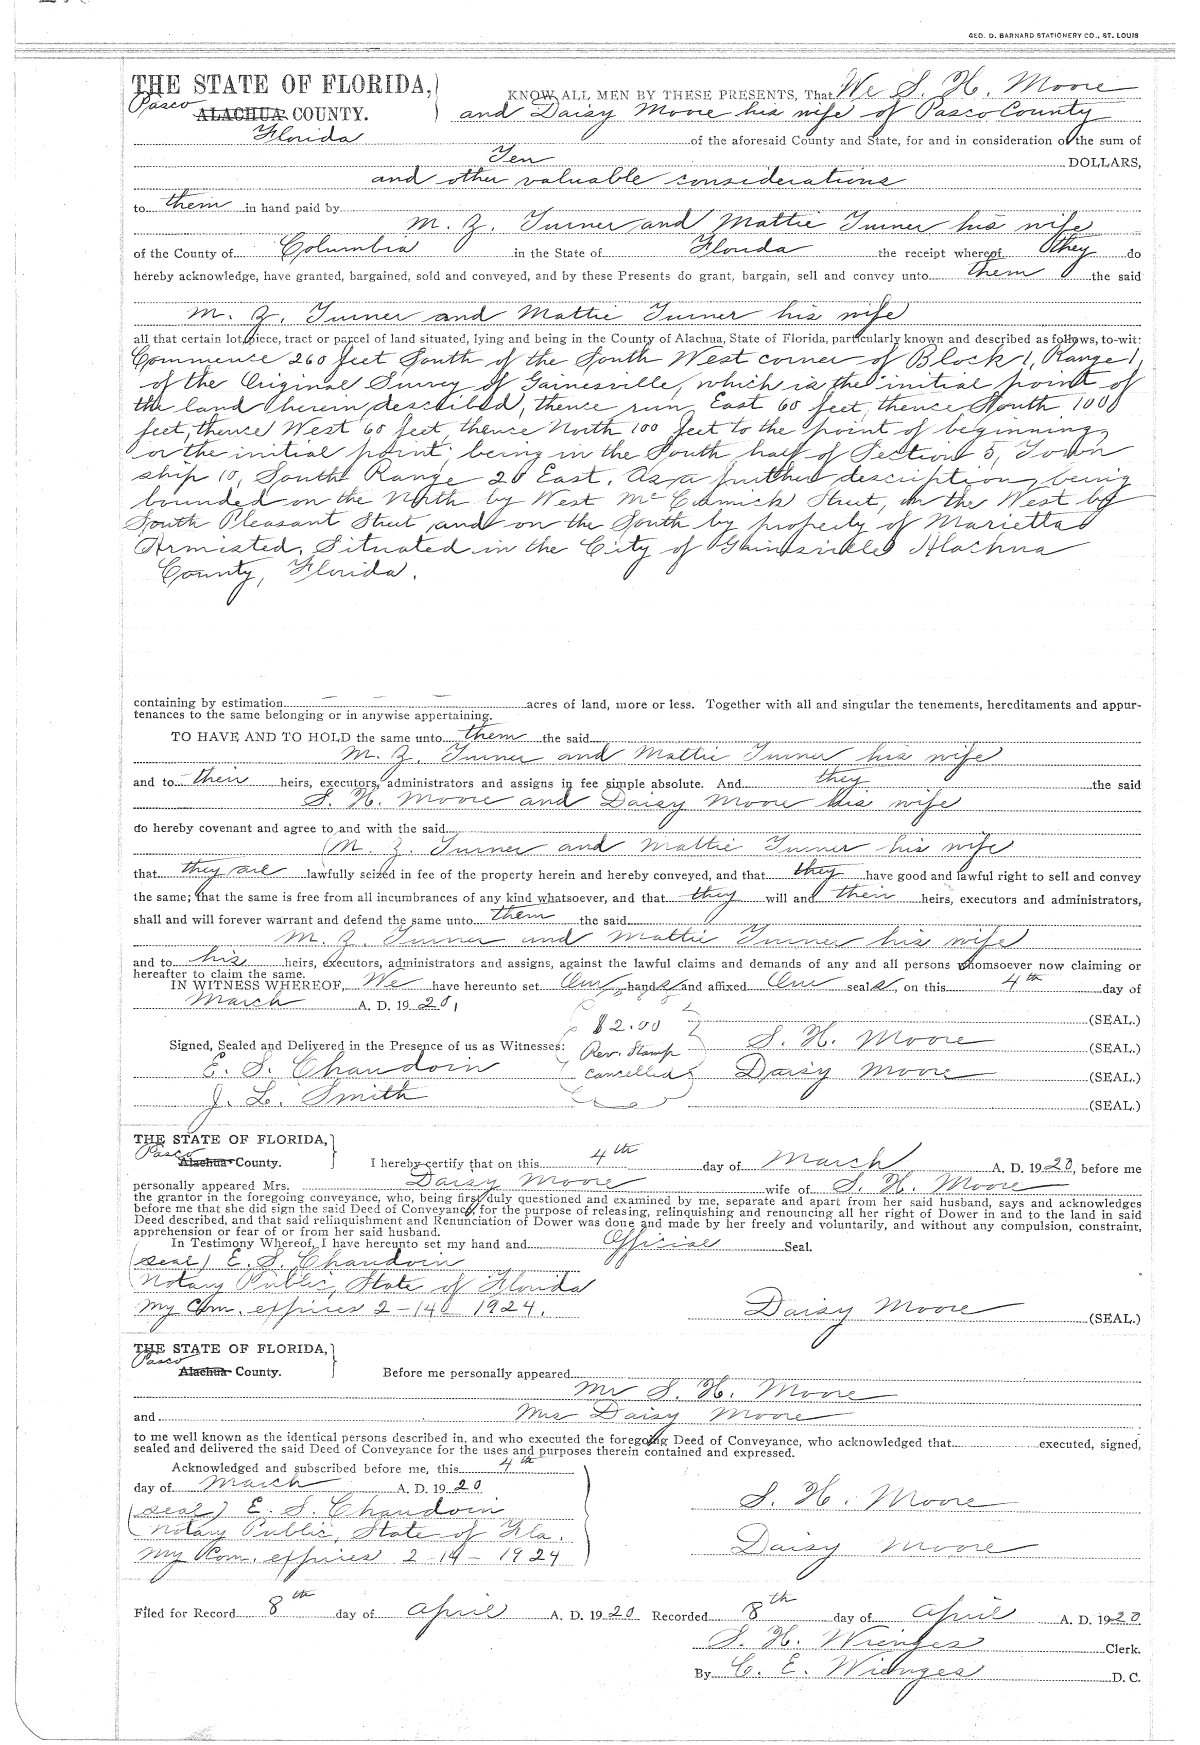 GEO. D. BARNARD STATIONERY CO., ST. LOUIS
THE STATE OF FLORIDA,
Pasco
ALACHUA COUNTY.
KNOW ALL MEN BY THESE PRESENTS, That We S. H. Moore
and Daisy Moore his wife of Pasco County
Florida of the aforesaid County and State, for and in consideration of the sum of
Ten DOLLARS,
and other valuable considerations
to them in hand paid by
M. Z. Turner and Mattie Turner his wife
of the County of Columbia in the State of Florida the receipt whereof they do
hereby acknowledge, have granted, bargained, sold and conveyed, and by these Presents do grant, bargain, sell and convey unto them the said
M. Z. Turner and Mattie Turner his wife
all that certain lot, piece, tract or parcel of land situated, lying and being in the County of Alachua, State of Florida, particularly known and described as follows, to-wit:
Commence 260 feet South of the South West corner of Block 1, Range 1,
of the Original Survey of Gainesville, which is the initial point of
the land herein described, thence run East 60 feet, thence South 100
feet, thence West 60 feet, thence North 100 feet to the point of beginning,
or the initial point; being in the South half of Section 5, Town
ship 10, South Range 20 East. As a further description, being
bounded on the North by West McCormick Street, on the West by
South Pleasant Street and on the South by property of Marietta
Armisted. Situated in the City of Gainesville Alachua
County, Florida.
containing by estimation — — — acres of land, more or less. Together with all and singular the tenements, hereditaments and appur-
tenances to the same belonging or in anywise appertaining.
TO HAVE AND TO HOLD the same unto them the said
M. Z. Turner and Mattie Turner his wife
and to their heirs, executors, administrators and assigns in fee simple absolute. And they the said
S. H. Moore and Daisy Moore his wife
do hereby covenant and agree to and with the said
M. Z. Turner and Mattie Turner his wife
that they are lawfully seized in fee of the property herein and hereby conveyed, and that they have good and lawful right to sell and convey
the same; that the same is free from all incumbrances of any kind whatsoever, and that they will and their heirs, executors and administrators,
shall and will forever warrant and defend the same unto them the said
M. Z. Turner and Mattie Turner his wife
and to his heirs, executors, administrators and assigns, against the lawful claims and demands of any and all persons whomsoever now claiming or
hereafter to claim the same.
IN WITNESS WHEREOF, We have hereunto set Our hands and affixed Our seals, on this 4th day of
March A. D. 1920,
(SEAL.)
$2.00
Rev. Stamp
Cancelled
Signed, Sealed and Delivered in the Presence of us as Witnesses:
S. H. Moore (SEAL.)
E. S. Chaudoin
Daisy Moore (SEAL.)
J. L. Smith
(SEAL.)
THE STATE OF FLORIDA,
Pasco
Alachua County.
I hereby certify that on this 4th day of March A. D. 1920, before me
personally appeared Mrs. Daisy Moore wife of S. H. Moore
the grantor in the foregoing conveyance, who, being first duly questioned and examined by me, separate and apart from her said husband, says and acknowledges
before me that she did sign the said Deed of Conveyance for the purpose of releasing, relinquishing and renouncing all her right of Dower in and to the land in said
Deed described, and that said relinquishment and Renunciation of Dower was done and made by her freely and voluntarily, and without any compulsion, constraint,
apprehension or fear of or from her said husband.
In Testimony Whereof, I have hereunto set my hand and Official Seal.
(seal) E. S. Chaudoin
Notary Public, State of Florida
My Com. expires 2-14 1924.
Daisy Moore (SEAL.)
THE STATE OF FLORIDA,
Pasco
Alachua County.
Before me personally appeared
Mr S. H. Moore
and Mrs Daisy Moore
to me well known as the identical persons described in, and who executed the foregoing Deed of Conveyance, who acknowledged that executed, signed,
sealed and delivered the said Deed of Conveyance for the uses and purposes therein contained and expressed.
Acknowledged and subscribed before me, this 4th
day of March A. D. 1920
S. H. Moore
(seal) E. S. Chaudoin
Notary Public, State of Fla.
Daisy Moore
My Com. expires 2-14-1924
Filed for Record 8th day of April A. D. 1920 Recorded 8th day of April A. D. 1920
S. H. Wienges Clerk.
By C. E. Wienges D. C.